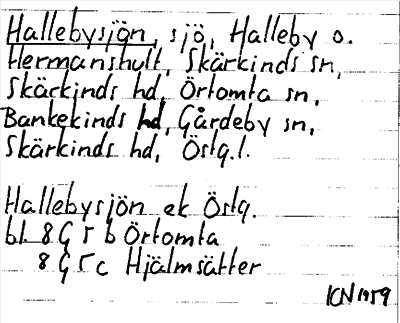 Hallebysjön, sjö, Halleby o.
Hermanshult, Skärkinds sn,
Skärkinds hd, Örtomta sn,
Bankekinds hd, Gårdeby sn,
Skärkinds hd, Östg.l.
Hallebysjön ek Östg.
bl. 8 G 5 b Örtomta
8 G 5 c Hjälmsätter
KN 1959